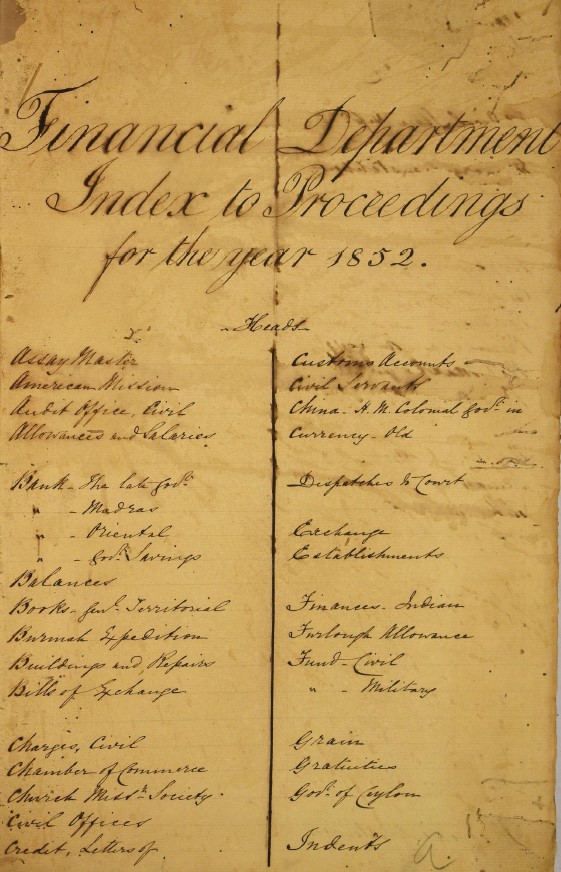 Financial Department
Index to Proceedings
for the year 1852.
Heads
Assay Master
American Mission
Audit Office, Civil
Allowances and Salaries
Bank - The late Govt.
" - Madras
" - Oriental
" - Govt. Savings
Balances
Books - Genl. Territorial
Burmah Expedition
Buildings and Repairs
Bills of Exchange
Charges, Civil
Chamber of Commerce
Church Missy. Society.
Civil Offices
Credit, Letters of
Customs Accounts
Civil Servants
China - H. M. Colonial Govt. in
Currency - Old
Despatches to Court
Exchange
Establishments
Finances - Indian
Furlough Allowance
Fund - Civil
" - Military
Grain
Gratuities
Govt. of Ceylon
Indents